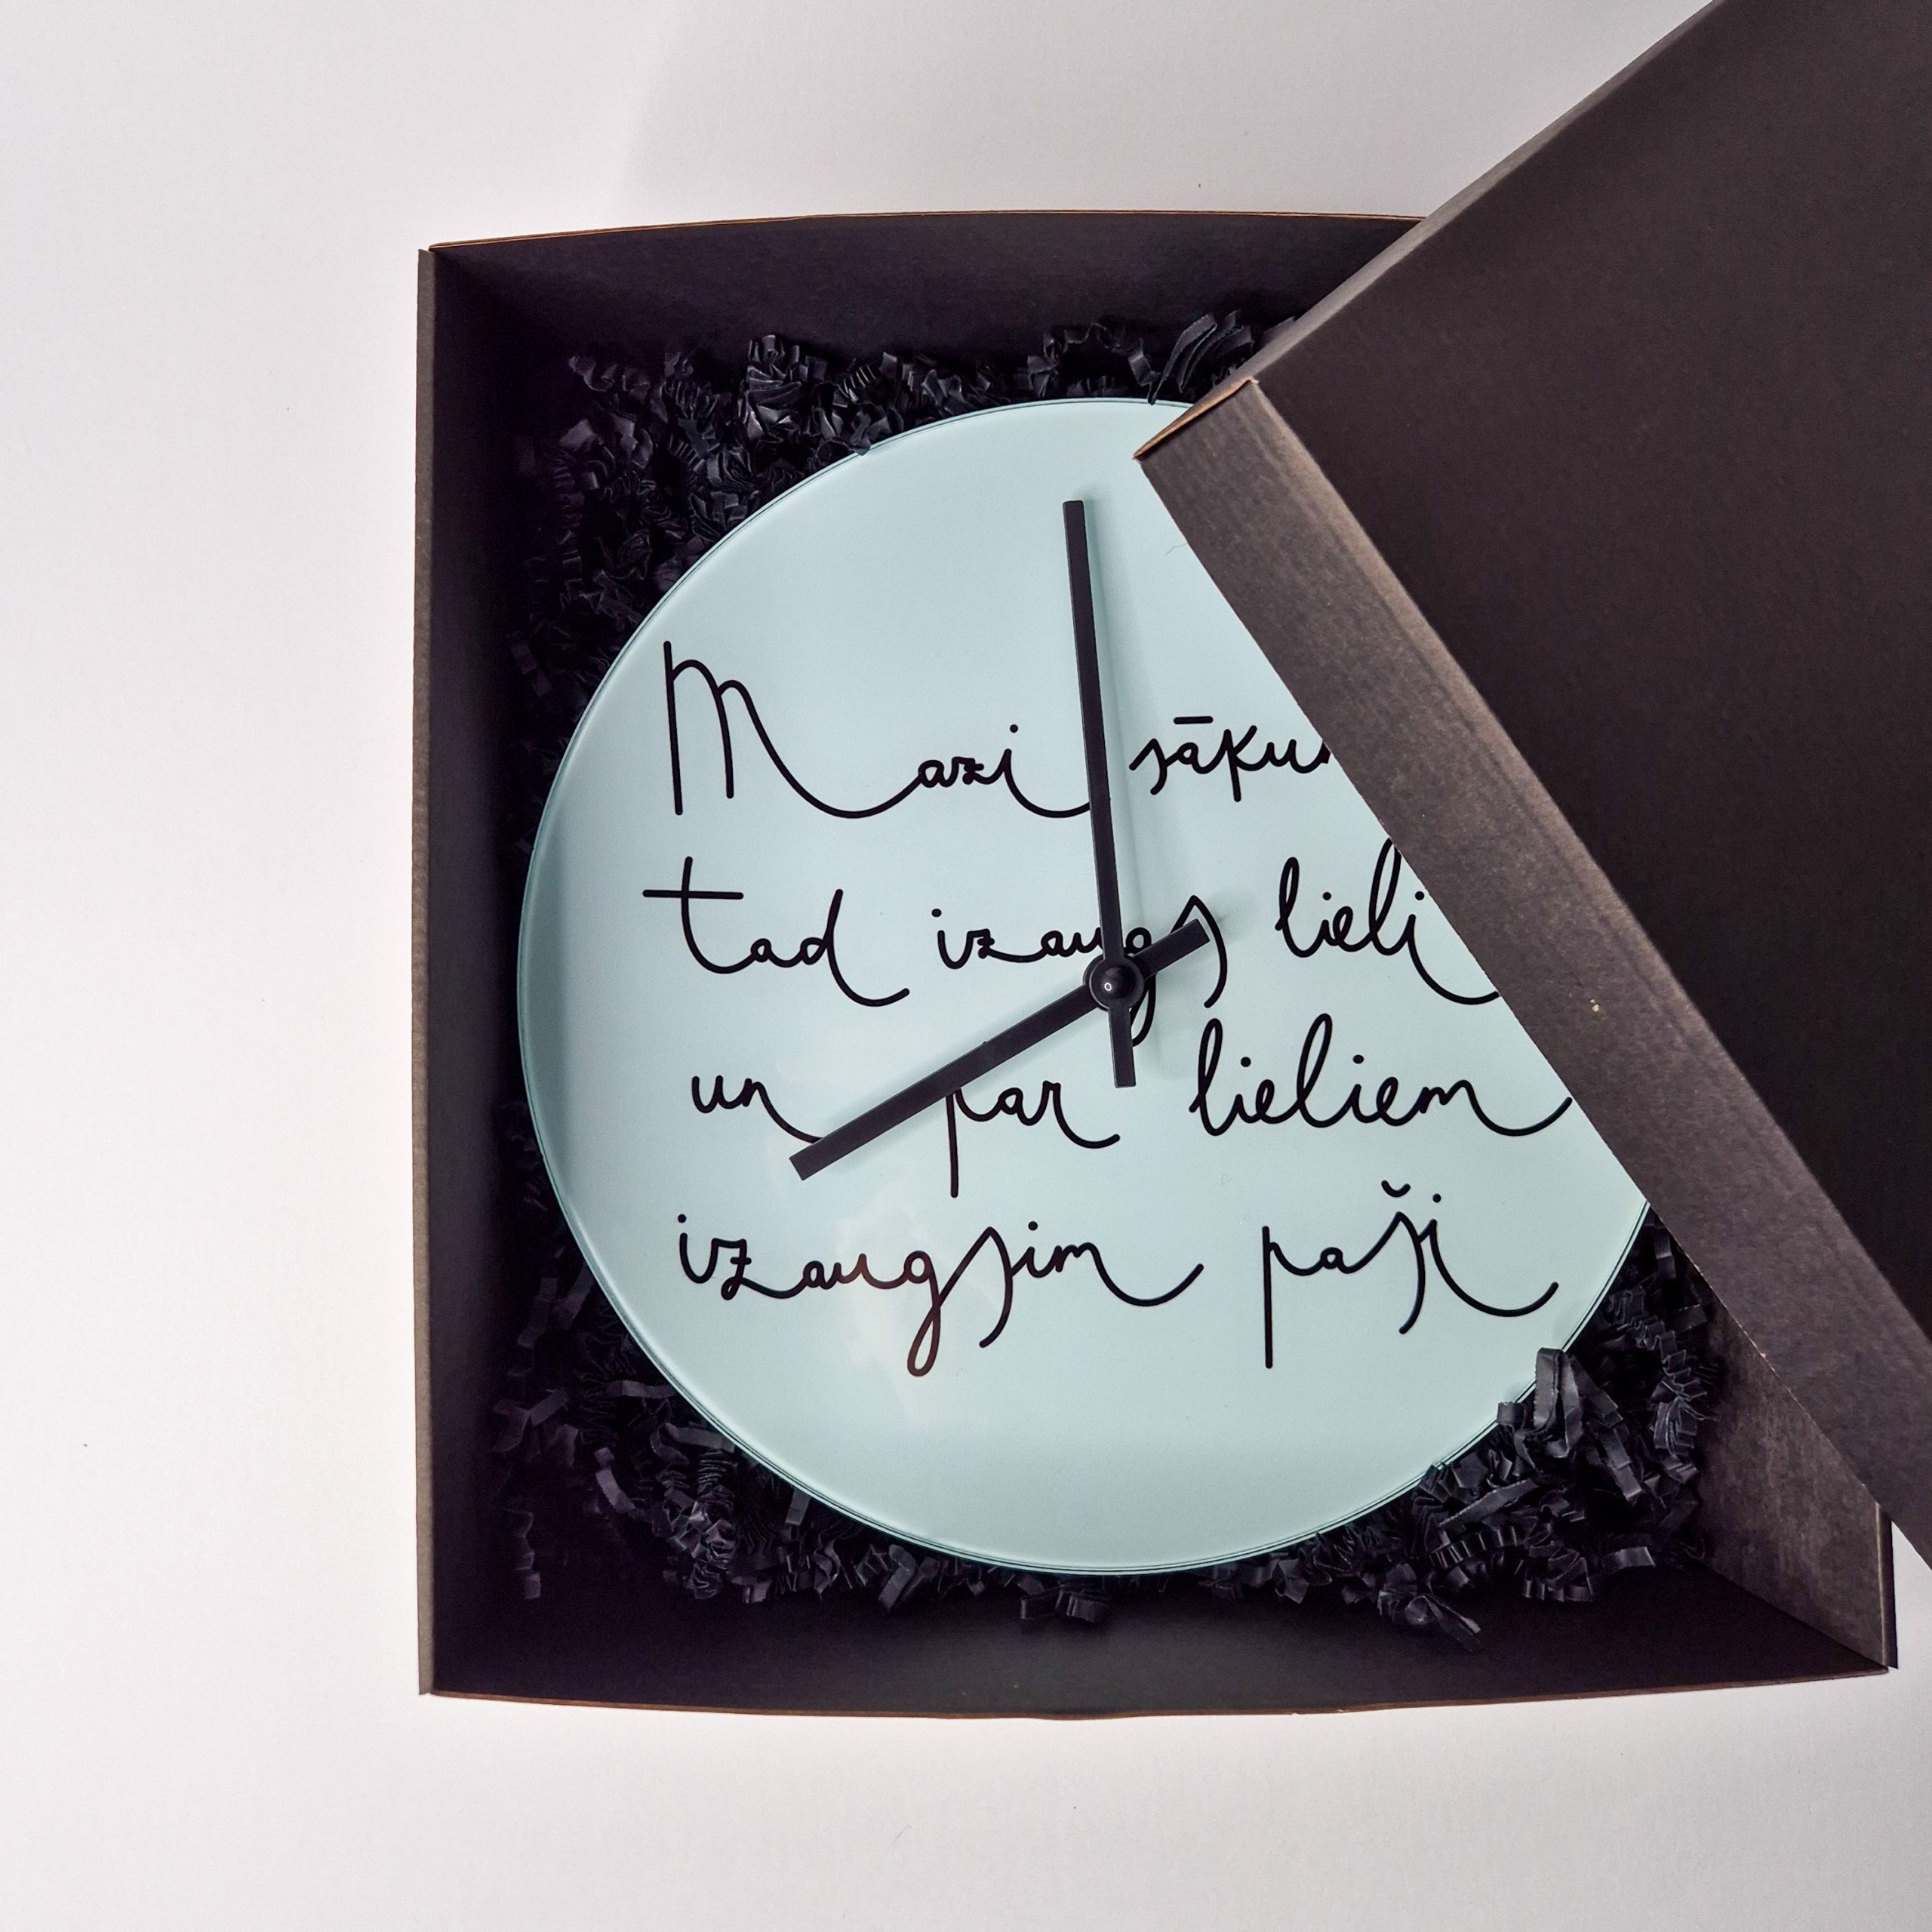 Mazi
tad izaugs lieli
un par lieliem
izaugsim paši